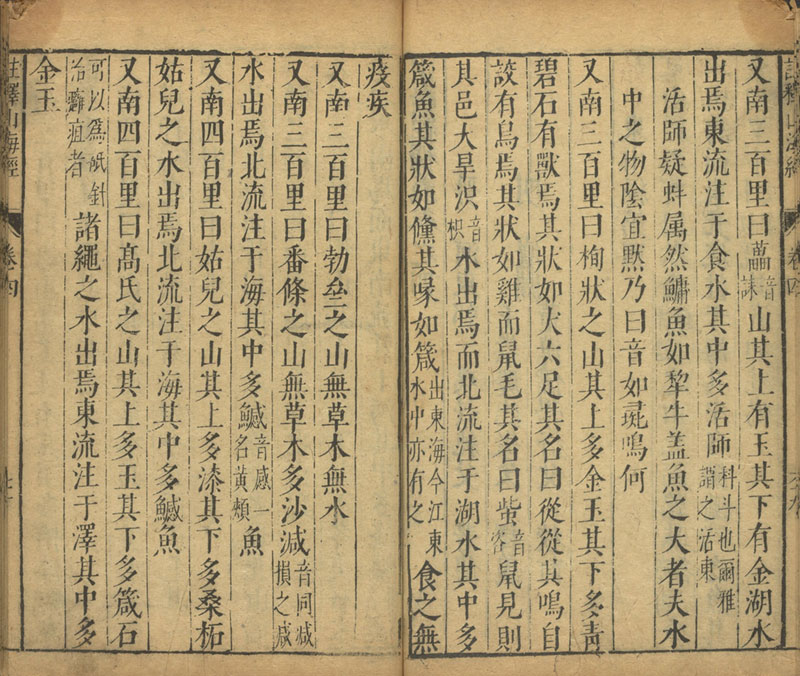 又南三百里曰藟音誄山其上有玉其下有金湖水
出焉東流注于食水其中多活師科斗也爾雅謂之活東
活師疑蚌属然鱅魚如犂牛盖魚之大者夫水
中之物陰宜默乃曰音如彘鳴何
又南三百里曰栒狀之山其上多金玉其下多靑
碧石有獸焉其狀如犬六足其名曰從從其鳴自
詨有鳥焉其狀如雞而鼠毛其名曰䖪音咨鼠見則
其邑大旱沢音枳水出焉而北流注于湖水其中多
箴魚其狀如鯈其喙如箴出東海今江東水中亦有之食之無
疫疾
又南三百里曰勃亝之山無草木無水
又南三百里曰番條之山無草木多沙減音同減損之減
水出焉北流注于海其中多鱤音感一名黃頰魚
又南四百里曰姑兒之山其上多漆其下多桑柘
姑兒之水出焉北流注于海其中多鱤魚
又南四百里曰高氏之山其上多玉其下多箴石
可以爲砥針治癰疽者諸繩之水出焉東流注于澤其中多
金玉
註釋山海經 卷四